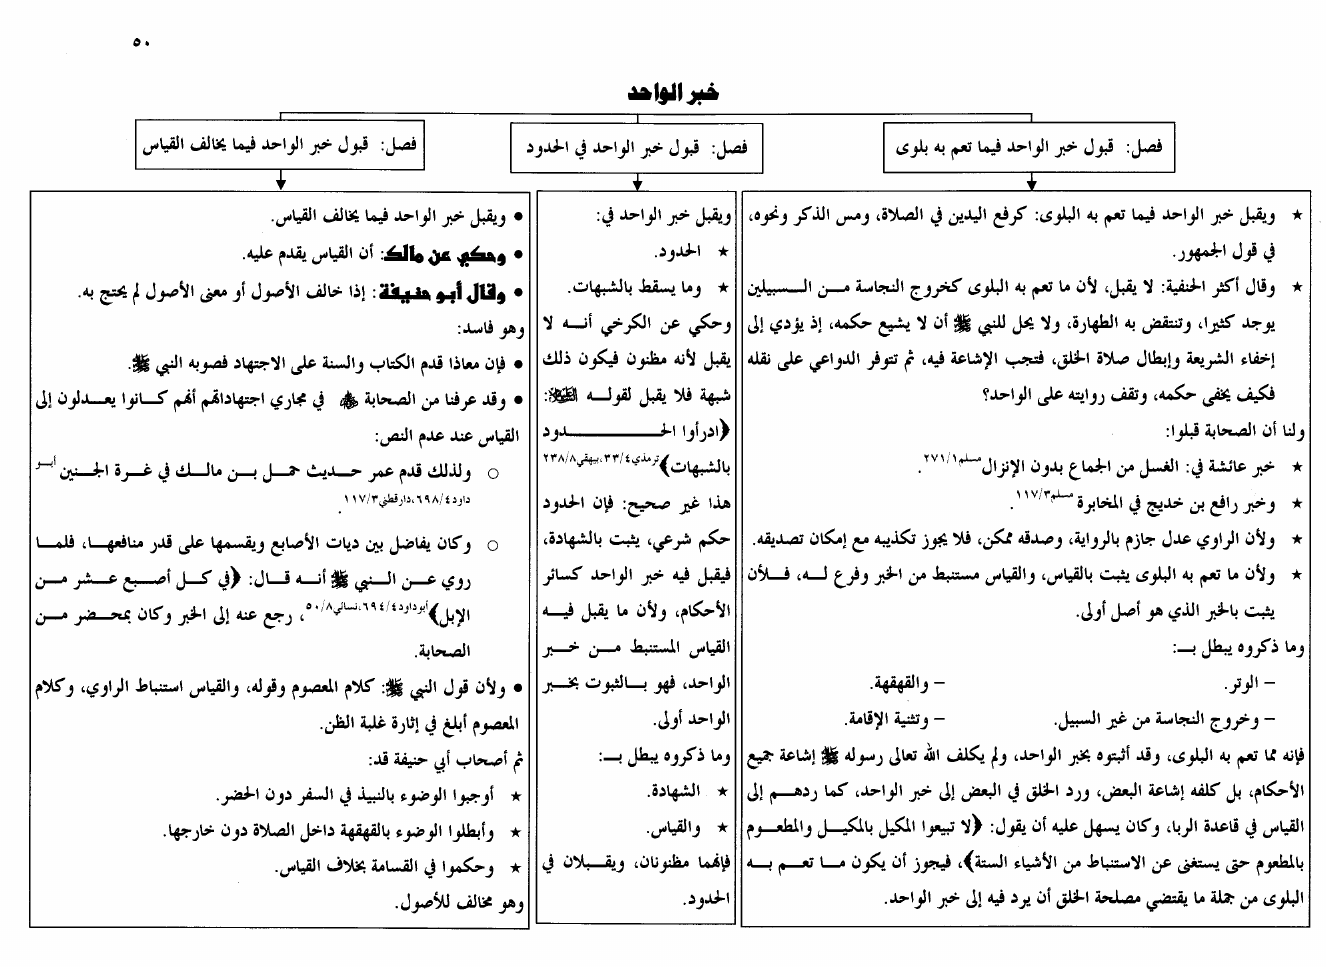 ٥٠
خبر الواحد
فصل: قبول خبر الواحد فيما تعم به بلوى
★ ويقبل خبر الواحد فيما تعم به البلوى: كرفع اليدين في الصلاة، ومس الذكر ونحوه،
في قول الجمهور.
★ وقال أكثر الحنفية: لا يقبل، لأن ما تعم به البلوى كخروج النجاسة مـن الـسبيلين
يوجد كثيرا، وتنتقض به الطهارة، ولا يحل للنبي ﷺ أن لا يشيع حكمه، إذ يؤدي إلى
إخفاء الشريعة وإبطال صلاة الخلق، فتجب الإشاعة فيه، ثم تتوفر الدواعي على نقله
فكيف يخفى حكمه، وتقف روايته على الواحد؟
ولنا أن الصحابة قبلوا:
★ خبر عائشة في: الغسل من الجماع بدون الإنزال مسلم٢٧١/١.
★ وخبر رافع بن خديج في المخابرة مسلم١١٧/٣.
★ ولأن الراوي عدل جازم بالرواية، وصدقه ممكن، فلا يجوز تكذيبه مع إمكان تصديقه.
★ ولأن ما تعم به البلوى يثبت بالقياس، والقياس مستنبط من الخبر وفرع لـه، فـلأن
يثبت بالخبر الذي هو أصل أولى.
وما ذكروه يبطل بـ:
– الوتر. – والقهقهة.
– وخروج النجاسة من غير السبيل. – وتثنية الإقامة.
فإنه مما تعم به البلوى، وقد أثبتوه بخبر الواحد، ولم يكلف الله تعالى رسوله ﷺ إشاعة جميع
الأحكام، بل كلفه إشاعة البعض، ورد الخلق في البعض إلى خبر الواحد، كما ردهـم إلى
القياس في قاعدة الربا، وكان يسهل عليه أن يقول: ﴿لا تبيعوا المكيل بالمكيـل والمطعـوم
بالمطعوم حتى يستغنى عن الاستنباط من الأشياء الستة﴾، فيجوز أن يكون مـا تعـم بـه
البلوى من جملة ما يقتضي مصلحة الخلق أن يرد فيه إلى خبر الواحد.
فصل: قبول خبر الواحد في الحدود
ويقبل خبر الواحد في:
★ الحدود.
★ وما يسقط بالشبهات.
وحكي عن الكرخي أنـه لا
يقبل لأنه مظنون فيكون ذلك
شبهة فلا يقبل لقولـه ﷺ:
﴿ادرأوا الحـــدود
بالشبهات﴾ ترمذي٣٣/٤، بيهقي٢٣٨/٨
هذا غير صحيح: فإن الحدود
حكم شرعي، يثبت بالشهادة،
فيقبل فيه خبر الواحد كسائر
الأحكام، ولأن ما يقبل فيـه
القياس المستنبط مـن خـبر
الواحد، فهو بـالثبوت بخـبر
الواحد أولى.
وما ذكروه يبطل بـ:
★ الشهادة.
★ والقياس.
فإنهما مظنونان، ويقـبلان في
الحدود.
فصل: قبول خبر الواحد فيما يخالف القياس
• ويقبل خبر الواحد فيما يخالف القياس.
• وحكي عن مالك: أن القياس يقدم عليه.
• وقال أبو حنيفة: إذا خالف الأصول أو معنى الأصول لم يحتج به.
وهو فاسد:
• فإن معاذا قدم الكتاب والسنة على الاجتهاد فصوبه النبي ﷺ.
• وقد عرفنا من الصحابة في مجاري اجتهاداتهم أنهم كـانوا يعـدلون إلى
القياس عند عدم النص:
○ ولذلك قدم عمر حـديث حمـل بـن مالـك في غـرة الجـنين أبـو
داود٦٩٨/٤، دارقطني١١٧/٣.
○ وكان يفاضل بين ديات الأصابع ويقسمها على قدر منافعهـا، فلمـا
روي عـن الـنبي ﷺ أنـه قـال: ﴿في كـل أصبع عـشر مـن
الإبل﴾ أبوداود٦٩٤/٤، نسائي٥٠/٨، رجع عنه إلى الخبر وكان بمحضر مـن
الصحابة.
• ولأن قول النبي ﷺ: كلام المعصوم وقوله، والقياس استنباط الراوي، وكلام
المعصوم أبلغ في إثارة غلبة الظن.
ثم أصحاب أبي حنيفة قد:
★ أوجبوا الوضوء بالنبيذ في السفر دون الحضر.
★ وأبطلوا الوضوء بالقهقهة داخل الصلاة دون خارجها.
★ وحكموا في القسامة بخلاف القياس.
وهو مخالف للأصول.